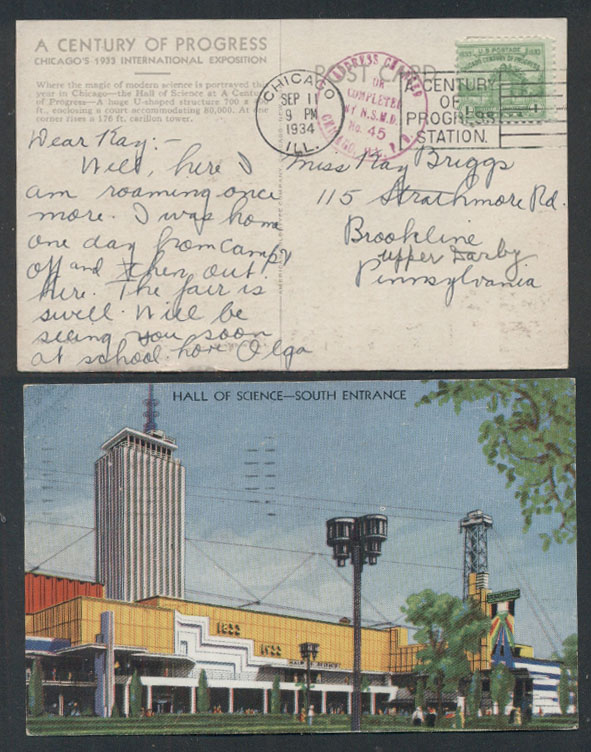 A CENTURY OF PROGRESS
CHICAGO'S 1933 INTERNATIONAL EXPOSITION
Where the magic of modern science is portrayed this
year in Chicago—the Hall of Science at A Century
of Progress—A huge U-shaped structure 700 x
ft., enclosing a court accommodating 80,000. At one
corner rises a 176 ft. carillon tower.
POST CARD
U.S. POSTAGE
CHICAGO
SEP 11
9 PM
1934
ILL.
ADDRESS CHANGED
OR
COMPLETED
BY N.S.M.D.
No. 45
A CENTURY
OF
PROGRESS
STATION.
Dear Kay:-
Well, here I
am roaming once
more. I was home
one day from camp
off and then out
here. The fair is
swell. Will be
seeing you soon
at school. Love Olga
Miss Kay Briggs
115 Strathmore Rd.
Brookline
Upper Darby
Pennsylvania
HALL OF SCIENCE—SOUTH ENTRANCE
1833
1933
HALL OF SCIENCE